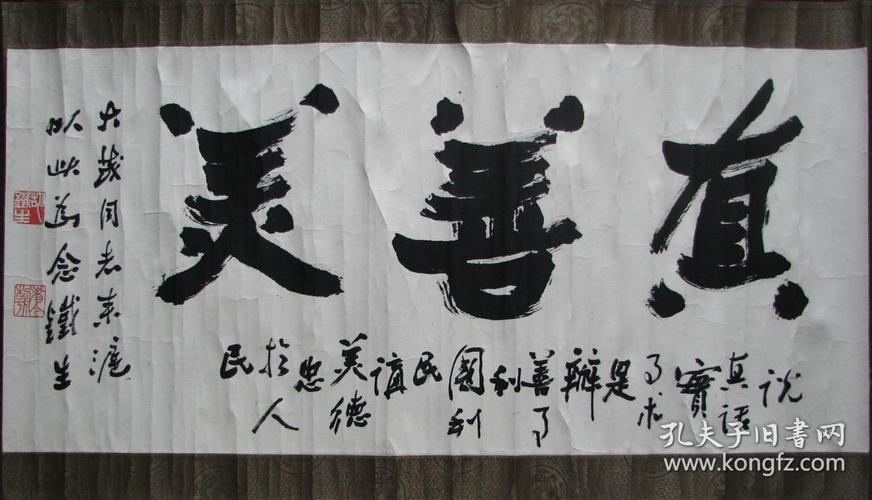 真善美
說
真話
實
事求
是
辦
善事
利
國利
民
講
美德
忠
於人
民
同志来滬
以此為念鐵生
孔夫子旧书网
www.kongfz.com